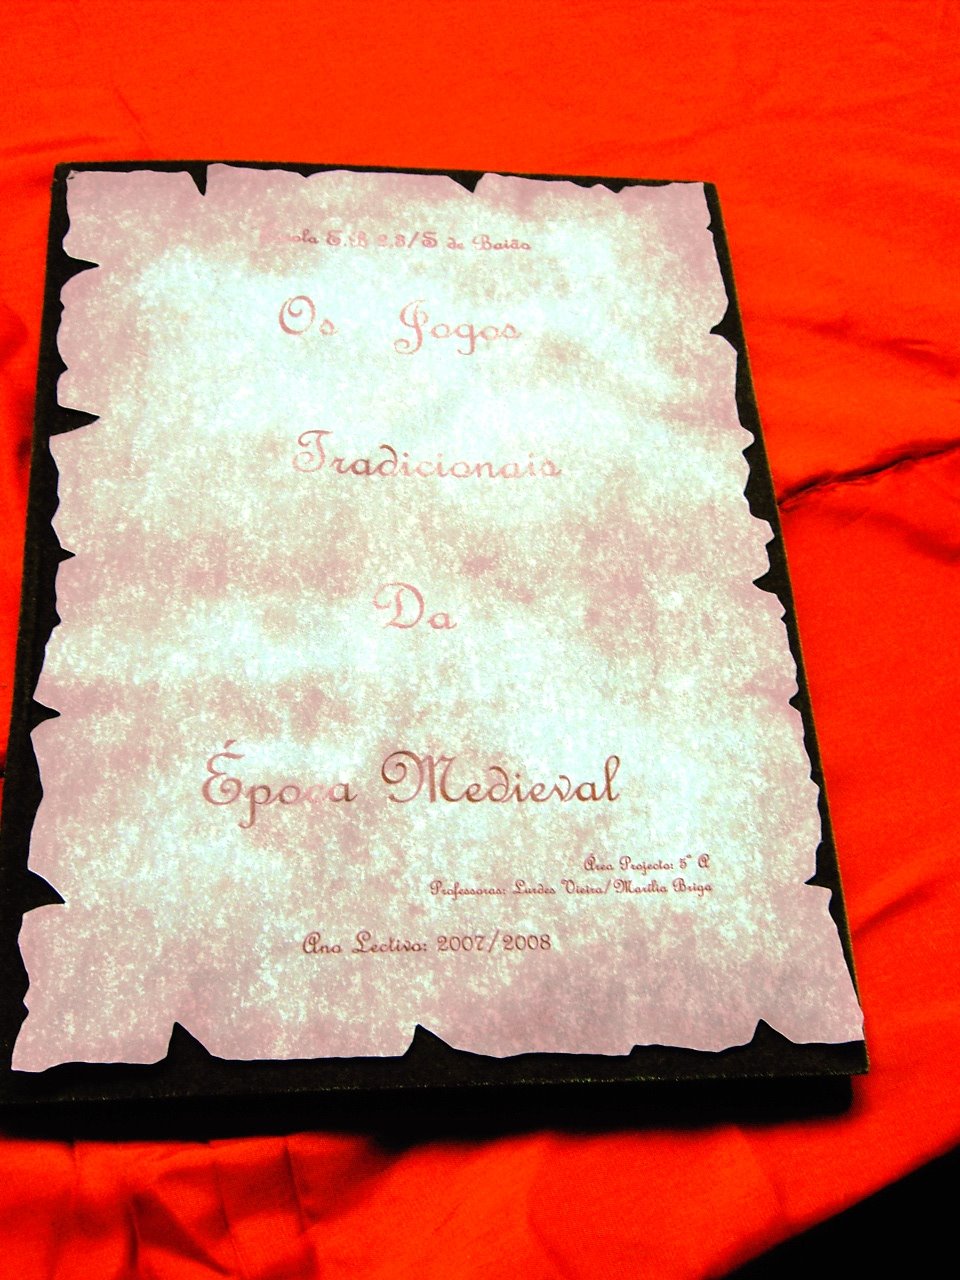 Escola E.B 2,3/S de Baião
Os Jogos
Tradicionais
Da
Época Medieval
Área Projecto: 5º A
Professoras: Lurdes Vieira/Marília Briga
Ano Lectivo: 2007/2008